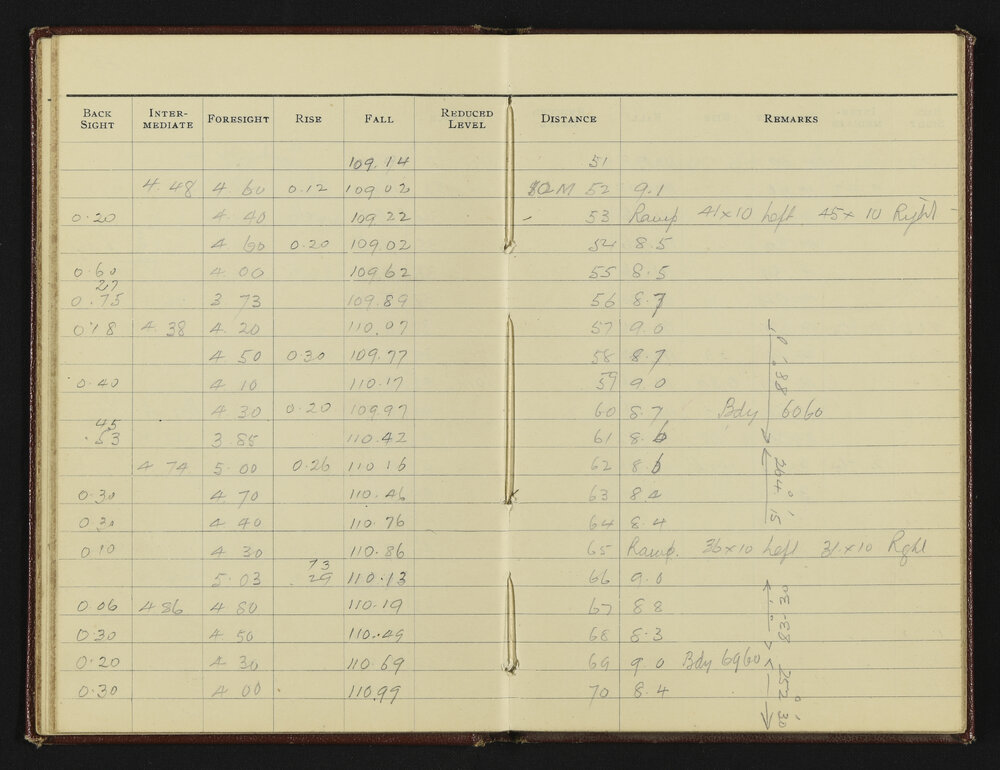 BACK SIGHT INTER-MEDIATE FORESIGHT RISE FALL REDUCED LEVEL DISTANCE REMARKS
109.14 51
4.48 4.60 0.12 109.02 52 9.1
0.20 4.40 109.22 - 53 Ramp 41x10 Left 45x10 Right -
4.60 0.20 109.02 54 8.5
0.60 4.00 109.62 55 8.5
27
0.75 3.73 109.89 56 8.7
0.18 4.38 4.20 110.07 57 9.0
4.50 0.30 109.77 58 8.7
0.40 4.10 110.17 59 9.0
4.30 0.20 109.97 60 8.7 Bdy 6060
45
.53 3.85 110.42 61 8.6
4.74 5.00 0.26 110.16 62 8.6
0.30 4.70 110.46 63 8.4
0.30 4.40 110.76 64 8.4
0.10 4.30 110.86 65 Ramp. 36x10 Left 31x10 Right
73
5.03 .29 110.13 66 9.0
0.06 4.86 4.80 110.19 67 8.8
0.30 4.50 110.49 68 8.3
0.20 4.30 110.69 69 9.0 Bdy 6960
0.30 4.00 110.99 70 8.4
264° 15'
83.30
252° 30'